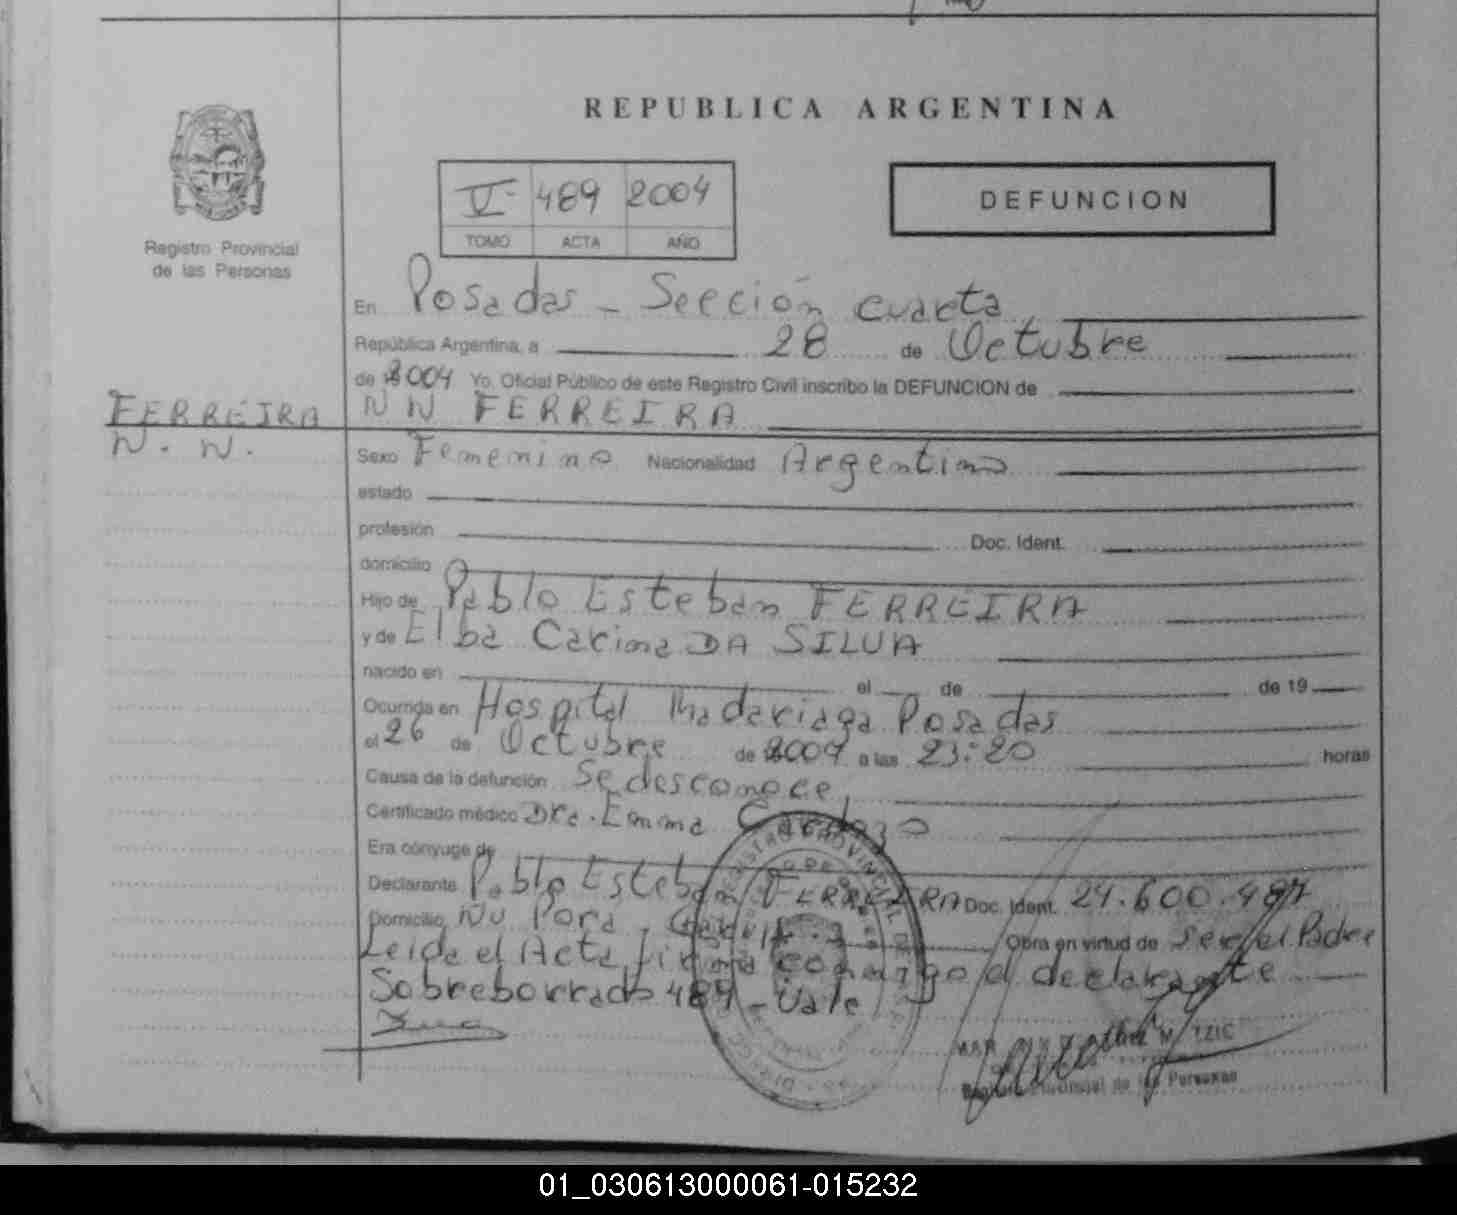 REPUBLICA ARGENTINA
Registro Provincial
de las Personas
V 489 2004
TOMO ACTA AÑO
DEFUNCION
En Posadas - Sección Cuarta
República Argentina, a 28 de Octubre
de 2004 Yo, Oficial Público de este Registro Civil inscribo la DEFUNCION de
FERREIRA
N. N.
N N FERREIRA
Sexo Femenino Nacionalidad Argentina
estado
profesión Doc. Ident.
domicilio
Hijo de Pablo Esteban FERREIRA
y de Elba Carina DA SILVA
nacido en el de de 19
Ocurrida en Hospital Madariaga Posadas
el 26 de Octubre de 2004 a las 23:20 horas
Causa de la defunción Se desconoce
Certificado médico Dra. Emma
Era cónyuge de
Declarante Pablo Esteban FERREIRA Doc. Ident. 24.600.487
Domicilio Ñu Pora, Obra en virtud de ser el Padre
Leida el Acta firma conmigo el declarante
Sobreborrado 489 - Vale
Registro Provincial de las Personas
01_030613000061-015232